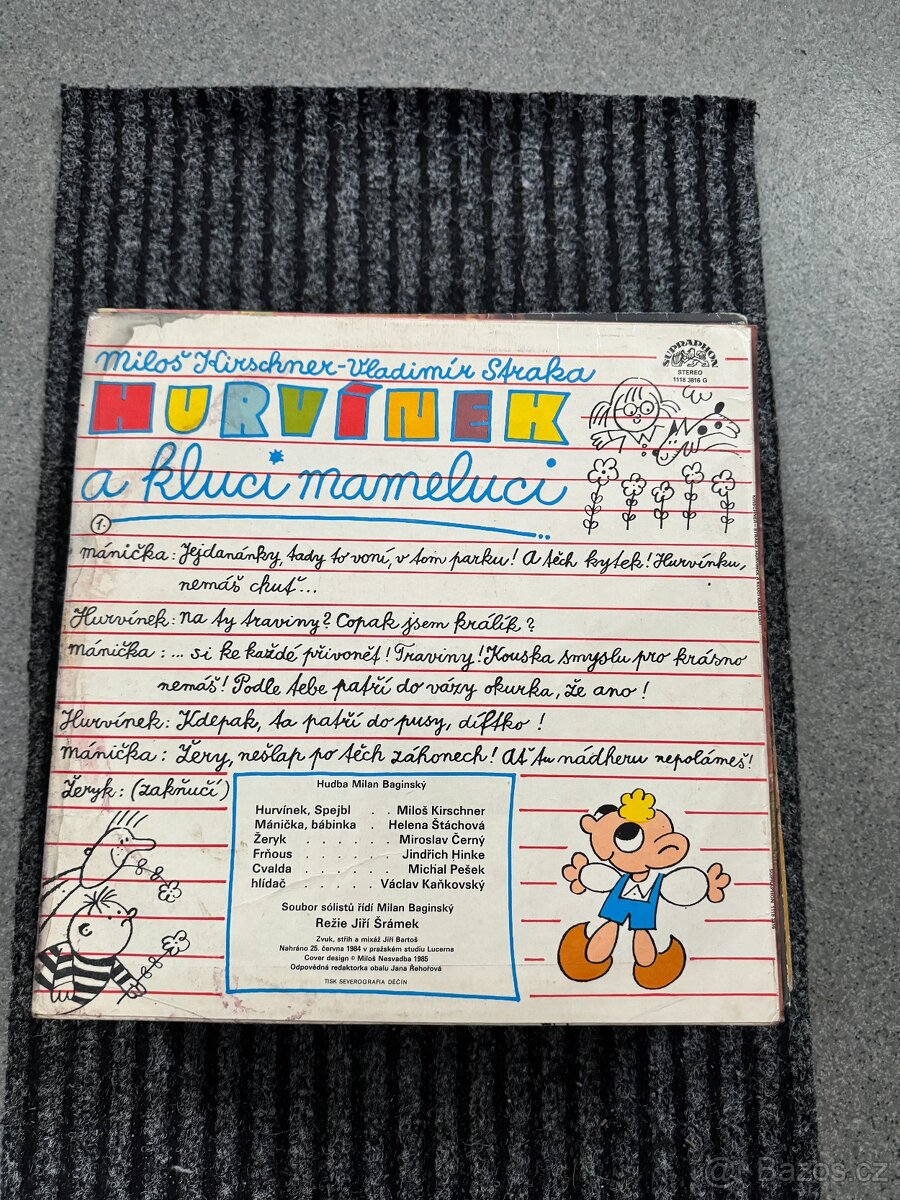 Miloš Kirschner-Vladimír Straka
SUPRAPHON
STEREO
1118 3816 G
HURVÍNEK
a kluci mameluci
1.
Mánička: Jejdanánky, tady to voní, v tom parku! A těch kytek! Hurvínku,
nemáš chuť...
Hurvínek: Na ty traviny? Copak jsem králík?
Mánička: ... si ke každé přivonět! Traviny! Kouska smyslu pro krásno
nemáš! Podle tebe patří do vázy okurka, že ano!
Hurvínek: Kdepak, ta patří do pusy, díftko!
Mánička: Žery, nešlap po těch záhonech! Ať tu nádheru nepolámeš!
Žeryk: (zakňučí)
Hudba Milan Baginský
Hurvínek, Spejbl . . Miloš Kirschner
Mánička, bábinka . Helena Štáchová
Žeryk . . . . . . Miroslav Černý
Frňous . . . . . . Jindřich Hinke
Cvalda . . . . . . Michal Pešek
hlídač . . . . . Václav Kaňkovský
Soubor sólistů řídí Milan Baginský
Režie Jiří Šrámek
Zvuk, střih a mixáž Jiří Bartoš
Nahráno 25. června 1984 v pražském studiu Lucerna
Cover design © Miloš Nesvadba 1985
Odpovědná redaktorka obalu Jana Řehořová
TISK SEVEROGRAFIA DĚČÍN
@ Bazos.cz